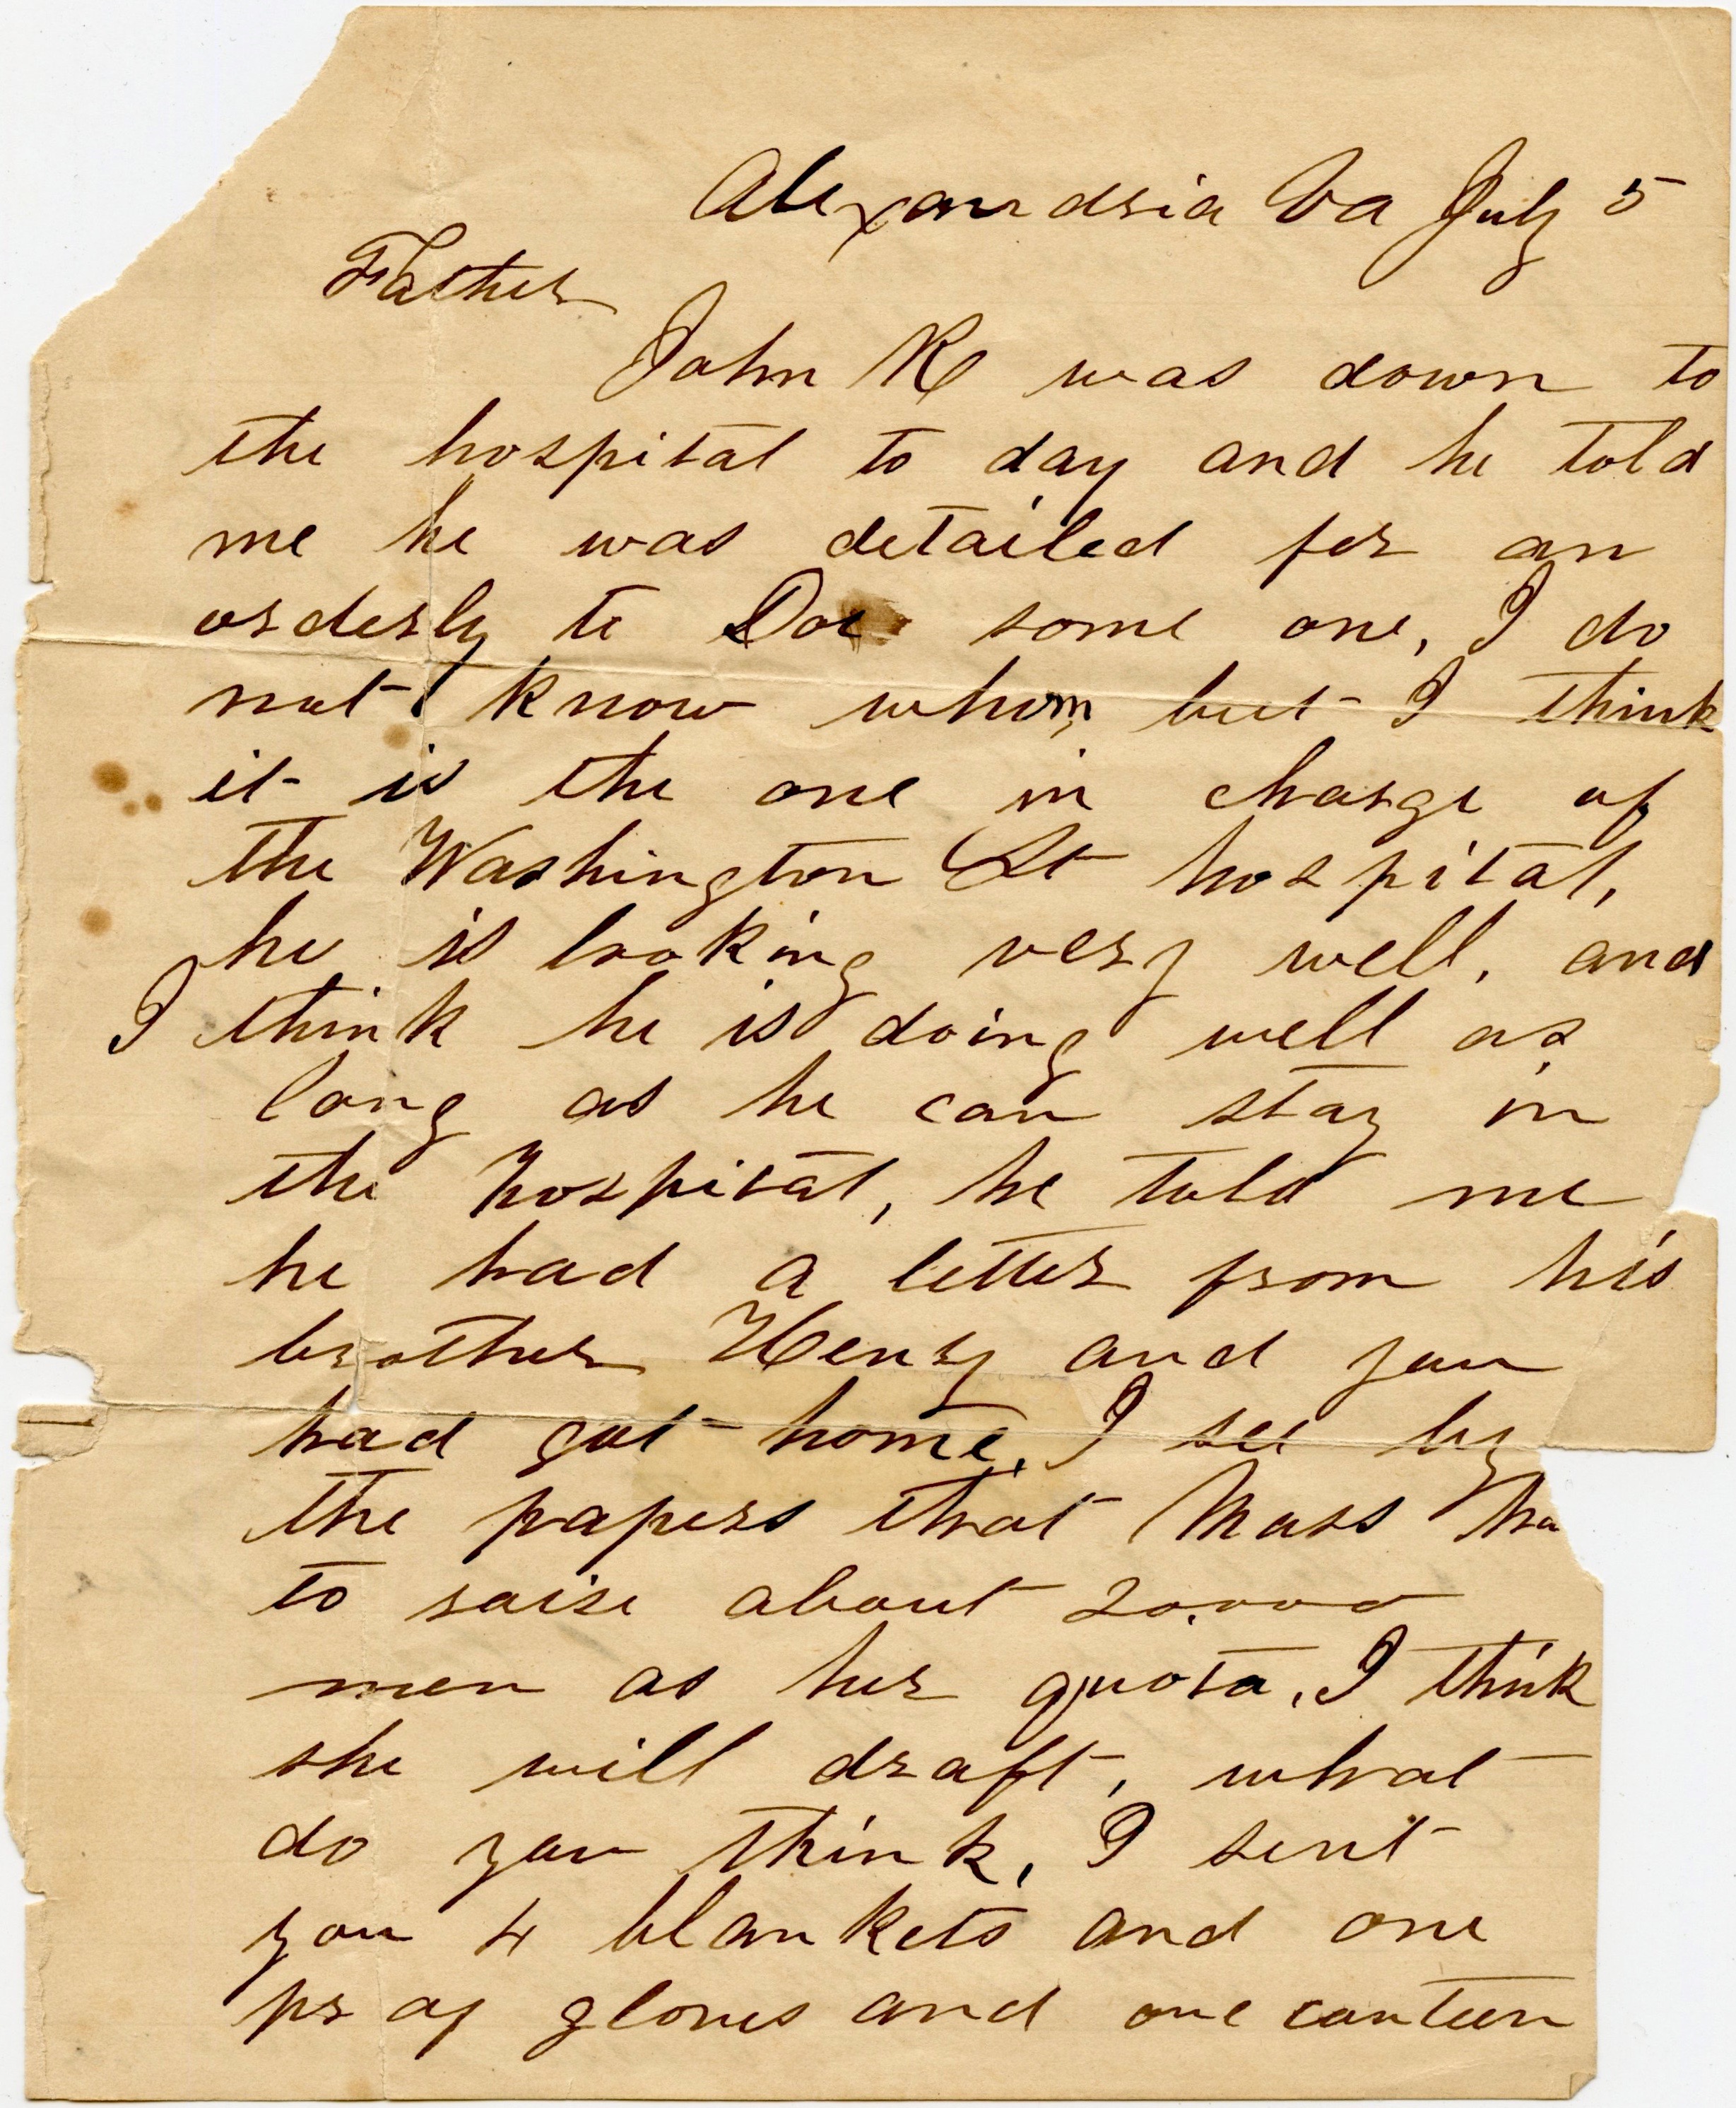 Alexandria Va July 5
Father
John R was down to
the hospital to day and he told
me he was detailed for an
orderly to Doc some one, I do
not know whom, but I think
it is the one in charge of
the Washington St hospital,
he is looking very well, and
I think he is doing well as
long as he can stay in
the hospital, he told me
he had a letter from his
brother Henry and you
had got home, I see by
the papers that Mass ha
to raise about 20,000
men as her quota, I think
she will draft, what
do you think, I sent
you 4 blankets and one
pr of gloves and one canteen